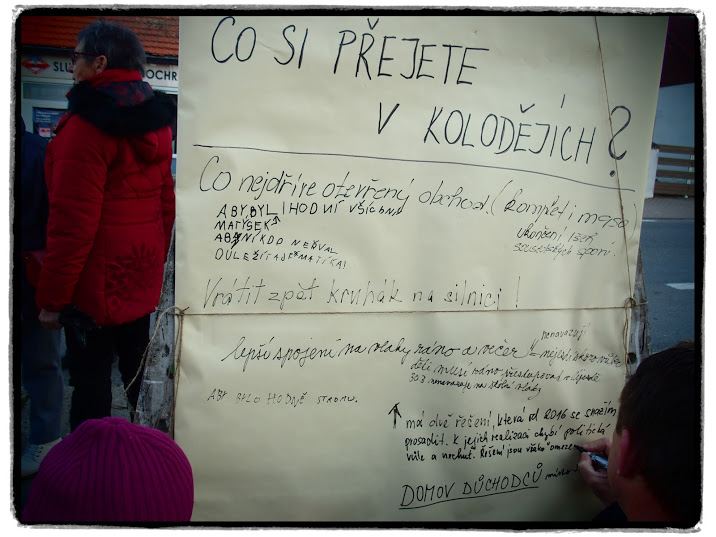 SLU
OCHR
CO SI PŘEJETE
V KOLODĚJÍCH?
Co nejdříve otevřený obchod. (komplet i maso)
ABY BYLI HODNÍ VŠICHNI
MATÝSEK
ABY NIKDO NEŘVAL
ukončení všech
sousedských sporů.
Vrátit zpět kruhák na silnici!
lepší spojení na vlaky ráno a večer
nenavazují
děti musí ráno přestupovat v Újezdě
303 nenavazuje na školní vlaky
ABY BYLO HODNĚ STROMŮ.
má dvě řešení, která od 2016 se snažím
prosadit. K jejich realizaci chybí politická
vůle a nechuť. Řešení jsou však
DOMOV DŮCHODCŮ